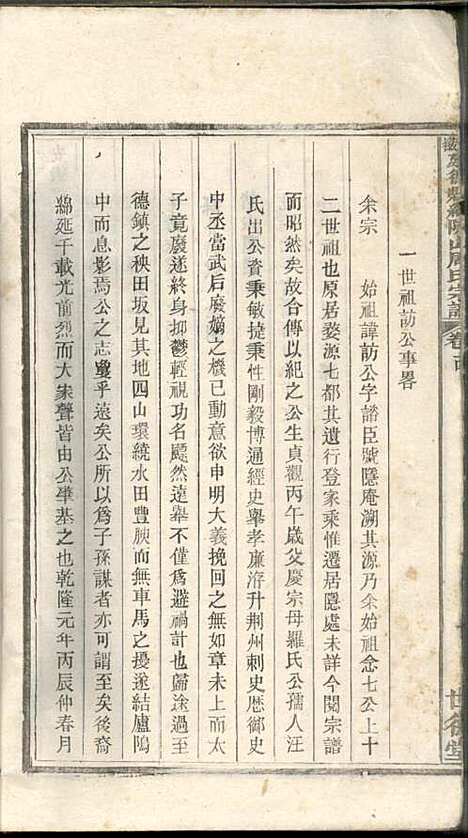 一世祖訪公事畧
余宗 始祖諱訪公字諮臣號隱庵溯其源乃余始祖念七公上十
二世祖也原居婺源七都其遺行登家乘惟遷居隱處未詳今閱宗譜
而昭然矣故合傳以紀之公生貞觀丙午歲父慶宗母羅氏公孺人汪
氏出公資秉敏捷秉性剛毅博通經史舉孝廉洊升荆州刺史歷御史
中丞當武后廢嫡之機已動意欲申明大義挽回之無如章未上而太
子竟廢遂終身抑鬱輕視功名飄然遠舉不僅為避禍計也歸途過至
德鎮之秧田坂見其地四山環繞水田豐腴而無車馬之擾遂結廬隝
中而息影焉公之志夐乎遠矣公所以為子孫謀者亦可謂至矣後裔
綿延千載光前烈而大家聲皆由公肇基之也乾隆元年丙辰仲春月
山周氏宗譜
世德堂